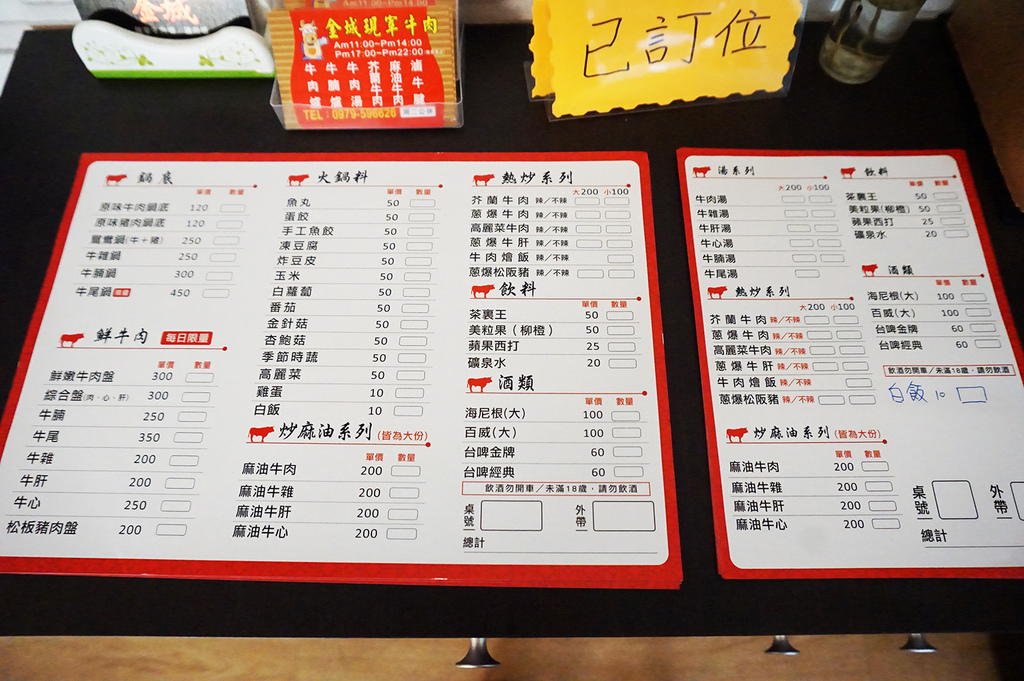 金城
金城現宰牛肉
Am11:00~Pm14:00
Pm17:00~Pm22:00
牛肉爐
牛腩爐
牛肉湯
芥蘭牛肉
麻油牛肉
滷牛腱
TEL：0979-596626
已訂位
鍋底
單價 數量
原味牛肉鍋底 120
原味豬肉鍋底 120
鴛鴦鍋(牛+豬) 250
牛雜鍋 250
牛腩鍋 300
牛尾鍋 450
鮮牛肉 每日限量
單價 數量
鮮嫩牛肉盤 300
綜合盤(肉、心、肝) 300
牛腩 250
牛尾 350
牛雜 200
牛肝 200
牛心 250
松板豬肉盤 200
火鍋料
單價 數量
魚丸 50
蛋餃 50
手工魚餃 50
凍豆腐 50
炸豆皮 50
玉米 50
白蘿蔔 50
番茄 50
金針菇 50
杏鮑菇 50
季節時蔬 50
高麗菜 50
雞蛋 10
白飯 10
炒麻油系列(皆為大份)
單價 數量
麻油牛肉 200
麻油牛雜 200
麻油牛肝 200
麻油牛心 200
熱炒系列
大200 小100
芥蘭牛肉 辣／不辣
蔥爆牛肉 辣／不辣
高麗菜牛肉 辣／不辣
蔥爆牛肝 辣／不辣
牛肉燴飯 辣／不辣
蔥爆松阪豬 辣／不辣
飲料
單價 數量
茶裏王 50
美粒果(柳橙) 50
蘋果西打 25
礦泉水 20
酒類
單價 數量
海尼根(大) 100
百威(大) 100
台啤金牌 60
台啤經典 60
飲酒勿開車／未滿18歲，請勿飲酒
桌號
外帶
總計
湯系列
大200 小100
牛肉湯
牛雜湯
牛肝湯
牛心湯
牛腩湯
牛尾湯
熱炒系列
大200 小100
芥蘭牛肉 辣／不辣
蔥爆牛肉 辣／不辣
高麗菜牛肉 辣／不辣
蔥爆牛肝 辣／不辣
牛肉燴飯 辣／不辣
蔥爆松阪豬 辣／不辣
炒麻油系列(皆為大份)
單價 數量
麻油牛肉 200
麻油牛雜 200
麻油牛肝 200
麻油牛心 200
飲料
單價 數量
茶裏王 50
美粒果(柳橙) 50
蘋果西打 25
礦泉水 20
酒類
單價 數量
海尼根(大) 100
百威(大) 100
台啤金牌 60
台啤經典 60
飲酒勿開車／未滿18歲，請勿飲酒
白飯 10
桌號
外帶
總計